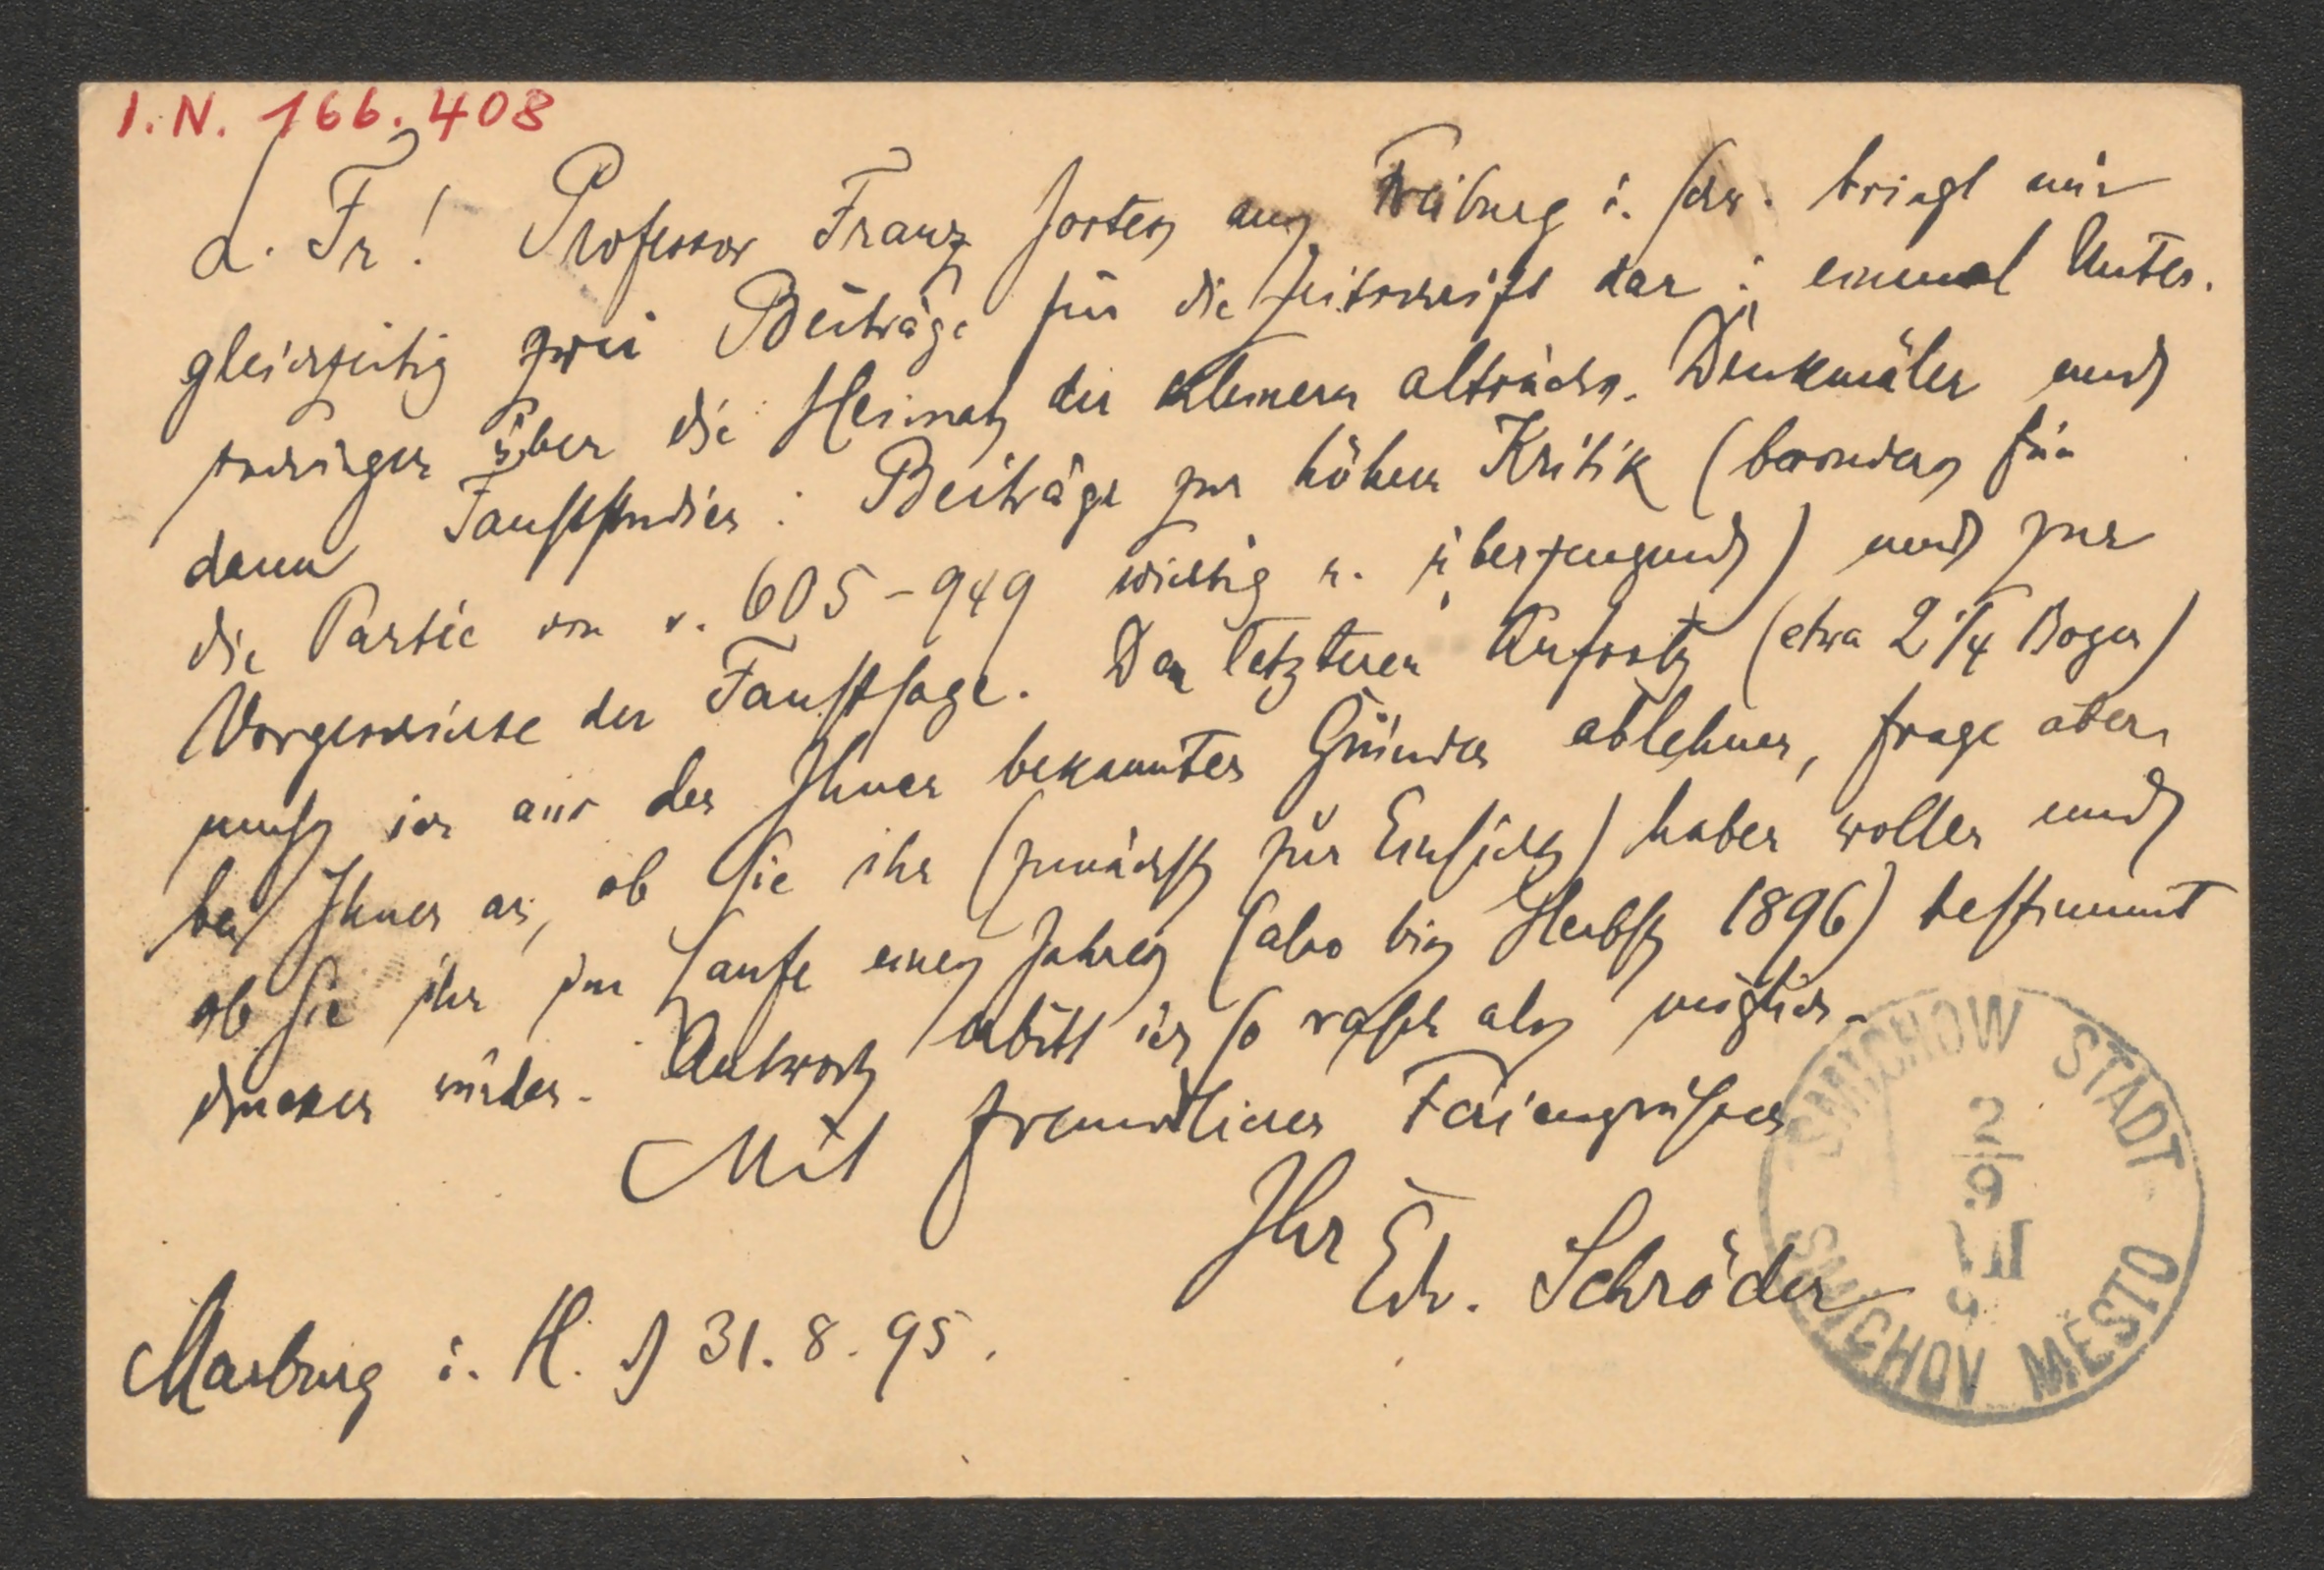 I.N. 166.408
L. Fr! Professor Franz Jostes aus Freiburg i. Schw. bringt mir
gleichzeitig zwei Beiträge für die Zeitschrift dar: einmal Unter-
suchungen über die Heimat der kleinern altsächs. Denkmäler und
dann Fauststudien: Beiträge zur höhern Kritik (besonders für
die Partie von v. 605-949 wichtig u. überzeugend) und zur
Vorgeschichte der Faustsage. Den letzteren Aufsatz (etwa 2 1/4 Bogen)
muß ich aus den Ihnen bekannten Gründen ablehnen, frage aber
bei Ihnen an, ob Sie ihn (zunächst zur Einsicht) haben wollen und
ob Sie ihn im Laufe eines Jahres (also bis Herbst 1896) bestimmt
drucken würden. Antwort erbitt ich so rasch als möglich.
Mit freundlichen Feriengrüßen
Ihr Edw. Schröder
Marburg i. H. d 31. 8. 95.
SMICHOW STADT
2
9
VII
9
SMICHOV MESTO